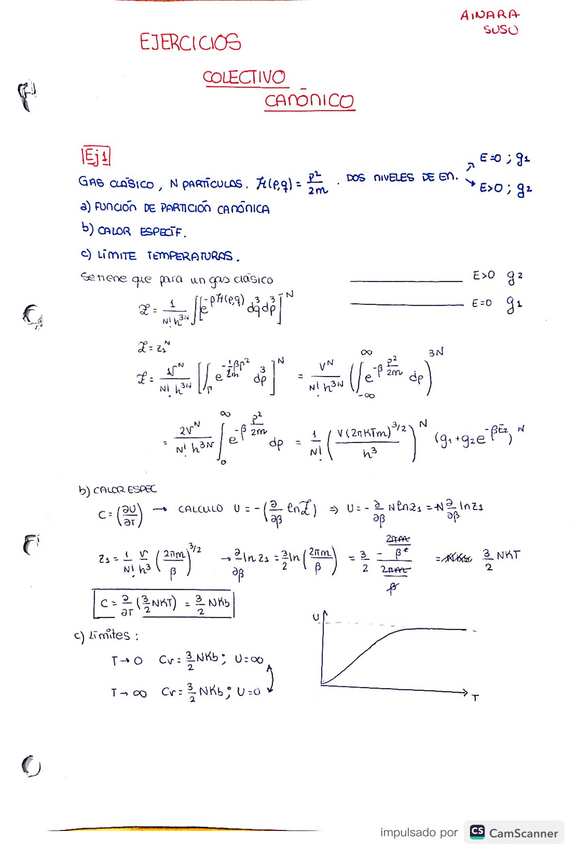 AINARA
SUSU
EJERCICIOS
COLECTIVO
CANÓNICO
Ej1
GAS CLÁSICO, N PARTÍCULAS. H(p,q) = p²/2m. DOS NIVELES DE EN. E=0; g1
E>0; g2
a) FUNCIÓN DE PARTICIÓN CANÓNICA
b) CALOR ESPECÍF.
c) LÍMITE TEMPERATURAS.
Se tiene que para un gas clásico
E>0 g2
E=0 g1
Z = 1/(N! h^3N) ∫[e^(-βH(p,q)) d³q d³p]^N
Z = z1^N
Z = V^N/(N! h^3N) [∫_p e^(-1/2m βp²) d³p]^N = V^N/(N! h^3N) (∫_-∞^∞ e^(-β p²/2m) dp)^3N
= 2V^N/(N! h^3N) ∫_0^∞ e^(-β p²/2m) dp = 1/N! (V(2πKTm)^3/2 / h³)^N (g1 + g2 e^(-βE2))^N
b) CALOR ESPEC
C = (∂U/∂T) → CALCULO U = -(∂/∂β ln Z) ⇒ U = -∂/∂β N ln z1 = N ∂/∂β ln z1
z1 = 1/N! V/h³ (2πm/β)^3/2 → ∂/∂β ln z1 = 3/2 ln (2πm/β) = 3/2 = 3/2 NKT
C = ∂/∂T (3/2 NKT) = 3/2 NKb
c) Límites:
T → 0 Cv = 3/2 NKb; U = ∞
T → ∞ Cv = 3/2 NKb; U = 0
U
T
impulsado por CS CamScanner